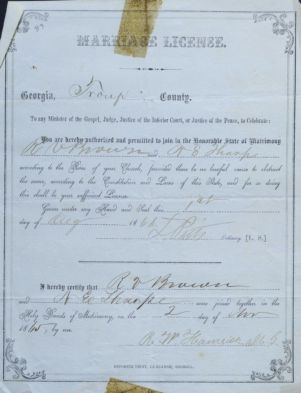 MARRIAGE LICENSE.
Georgia, Troup County.
To any Minister of the Gospel, Judge, Justice of the Inferior Court, or Justice of the Peace, to Celebrate:
You are hereby authorized and permitted to join in the Honorable State of Matrimony
R V Brown and N E Sharpe
according to the Rites of your Church, provided there be no lawful cause to obstruct
the same, according to the Constitution and Laws of this State, and for so doing
this shall be your sufficient License.
Given under my Hand and Seal this 1st
day of 186
Ordinary [L. S.]
I hereby certify that R V Brown
and N E Sharpe were joined together in the
Holy Bands of Matrimony, on the 2 day of
186 , by me.
REPORTER PRINT, LA GRANGE, GEORGIA.